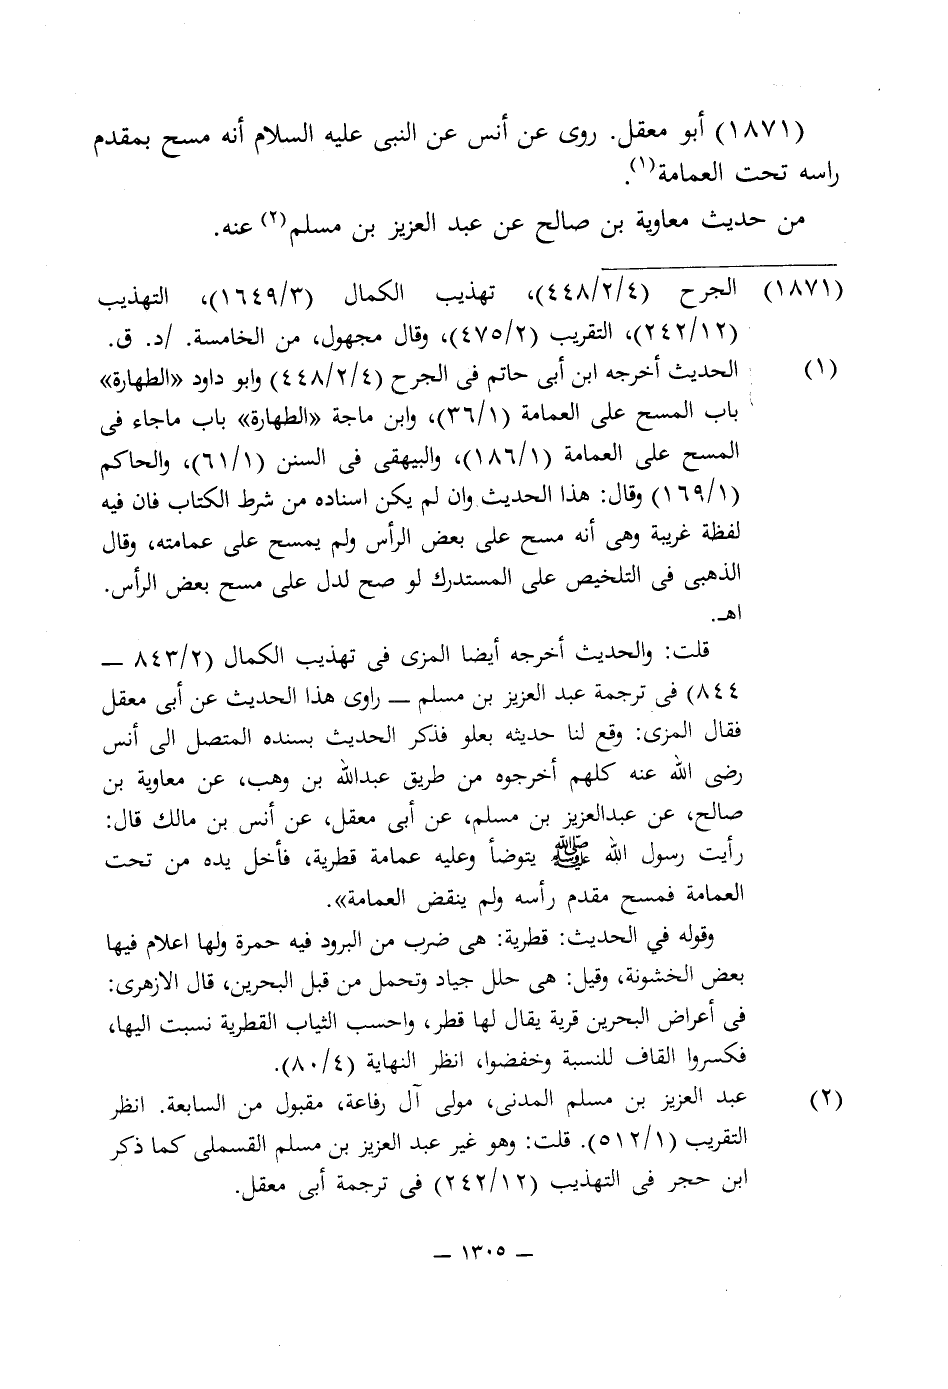 (١٨٧١) أبو معقل. روى عن أنس عن النبى عليه السلام أنه مسح بمقدم
راسه تحت العمامة(١).
من حديث معاوية بن صالح عن عبد العزيز بن مسلم(٢) عنه.
(١٨٧١) الجرح (٤٤٨/٢/٤)، تهذيب الكمال (١٦٤٩/٣)، التهذيب
(٢٤٢/١٢)، التقريب (٤٧٥/٢)، وقال مجهول، من الخامسة. /د. ق.
(١) الحديث أخرجه ابن أبى حاتم فى الجرح (٤٤٨/٢/٤) وابو داود «الطهارة»
باب المسح على العمامة (٣٦/١)، وابن ماجة «الطهارة» باب ماجاء فى
المسح على العمامة (١٨٦/١)، والبيهقى فى السنن (٦١/١)، والحاكم
(١٦٩/١) وقال: هذا الحديث وان لم يكن اسناده من شرط الكتاب فان فيه
لفظة غريبة وهى أنه مسح على بعض الرأس ولم يمسح على عمامته، وقال
الذهبى فى التلخيص على المستدرك لو صح لدل على مسح بعض الرأس.
اهـ.
قلت: والحديث أخرجه أيضا المزى فى تهذيب الكمال (٨٤٣/٢ —
٨٤٤) فى ترجمة عبد العزيز بن مسلم — راوى هذا الحديث عن أبى معقل
فقال المزى: وقع لنا حديثه بعلو فذكر الحديث بسنده المتصل الى أنس
رضى الله عنه كلهم أخرجوه من طريق عبدالله بن وهب، عن معاوية بن
صالح، عن عبدالعزيز بن مسلم، عن أبى معقل، عن أنس بن مالك قال:
رأيت رسول الله ﷺ يتوضأ وعليه عمامة قطرية، فأخل يده من تحت
العمامة فمسح مقدم رأسه ولم ينقض العمامة».
وقوله في الحديث: قطرية: هى ضرب من البرود فيه حمرة ولها اعلام فيها
بعض الخشونة، وقيل: هى حلل جياد وتحمل من قبل البحرين، قال الازهرى:
فى أعراض البحرين قرية يقال لها قطر، واحسب الثياب القطرية نسبت اليها،
فكسروا القاف للنسبة وخفضوا، انظر النهاية (٨٠/٤).
(٢) عبد العزيز بن مسلم المدنى، مولى آل رفاعة، مقبول من السابعة. انظر
التقريب (٥١٢/١). قلت: وهو غير عبد العزيز بن مسلم القسملى كما ذكر
ابن حجر فى التهذيب (٢٤٢/١٢) فى ترجمة أبى معقل.
— ١٣٠٥ —